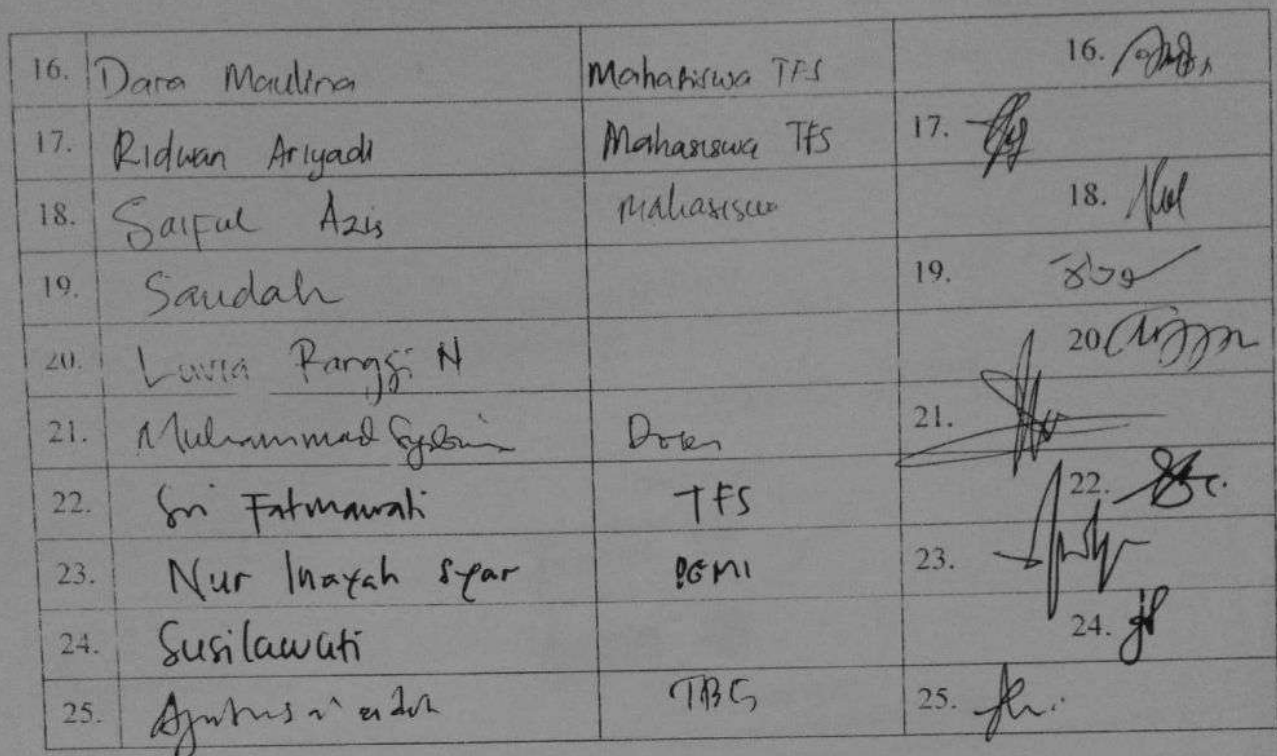 16. Dara Maulina Mahasiswa TFS 16.
17. Ridwan Ariyadi Mahasiswa TFS 17.
18. Saiful Azis Mahasiswa 18.
19. Saudah 19.
20. Luvia Ranggi N 20
21. Muhammad Dosen 21.
22. Sri Fatmawati TFS 22.
23. Nur Inayah Syar PGMI 23.
24. Susilawati 24.
25. TBG 25.